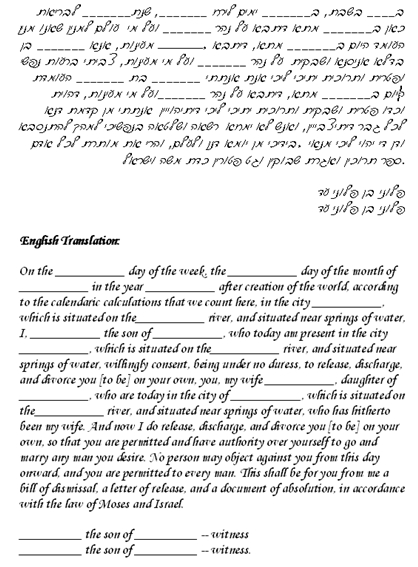 ב____ בשבת, ב_______ ימים לירח _______, שנת_______ לבריאת
כאן ב_______ מתא דיתבא על נהר _______ ועל מי עולם למנין שאנו מנין
העומד היום ב_______ מתא, דיתבא. _______ מעינות, אנא _______ בן
בדלא אניסנא ושבקית על נהר _______ ועל מי מעינות, צביתי ברעות נפשי
ופטרית ותרוכית יתיכי ליכי אנת אנתתי _______ בת _______ העומדת
היום ב_______ מתא, דיתבא על נהר _______ועל מי מעינות, דהוית
וכדו פטרית ושבקית ותרוכית יתיכי ליכי דיתיהוייין אנתתי מן קדמת דנא
לכל גבר דיתצביין, ואנש לא ימחא רשאה ושלטאה בנפשיכי למהך להתנסבא
ודן די יהוי ליכי מנאי .בידיכי מן יומא דנן ולעלם, והרי את מותרת לכל אדם
.ספר תרוכין ואגרת שבוקין וגט פטורין כדת משה וישראל
פלוני בן פלוני עד
פלוני בן פלוני עד
English Translation:
On the __________ day of the week, the __________ day of the month of
__________ in the year __________ after creation of the world, according
to the calendaric calculations that we count here, in the city __________,
which is situated on the__________ river, and situated near springs of water,
I, __________ the son of__________, who today am present in the city
__________, which is situated on the__________ river, and situated near
springs of water, willingly consent, being under no duress, to release, discharge,
and divorce you [to be] on your own, you, my wife __________, daughter of
__________, who are today in the city of__________, which is situated on
the__________ river, and situated near springs of water, who has hitherto
been my wife. And now I do release, discharge, and divorce you [to be] on your
own, so that you are permitted and have authority over yourself to go and
marry any man you desire. No person may object against you from this day
onward, and you are permitted to every man. This shall be for you from me a
bill of dismissal, a letter of release, and a document of absolution, in accordance
with the law of Moses and Israel.
__________ the son of __________ -- witness
__________ the son of __________ -- witness.